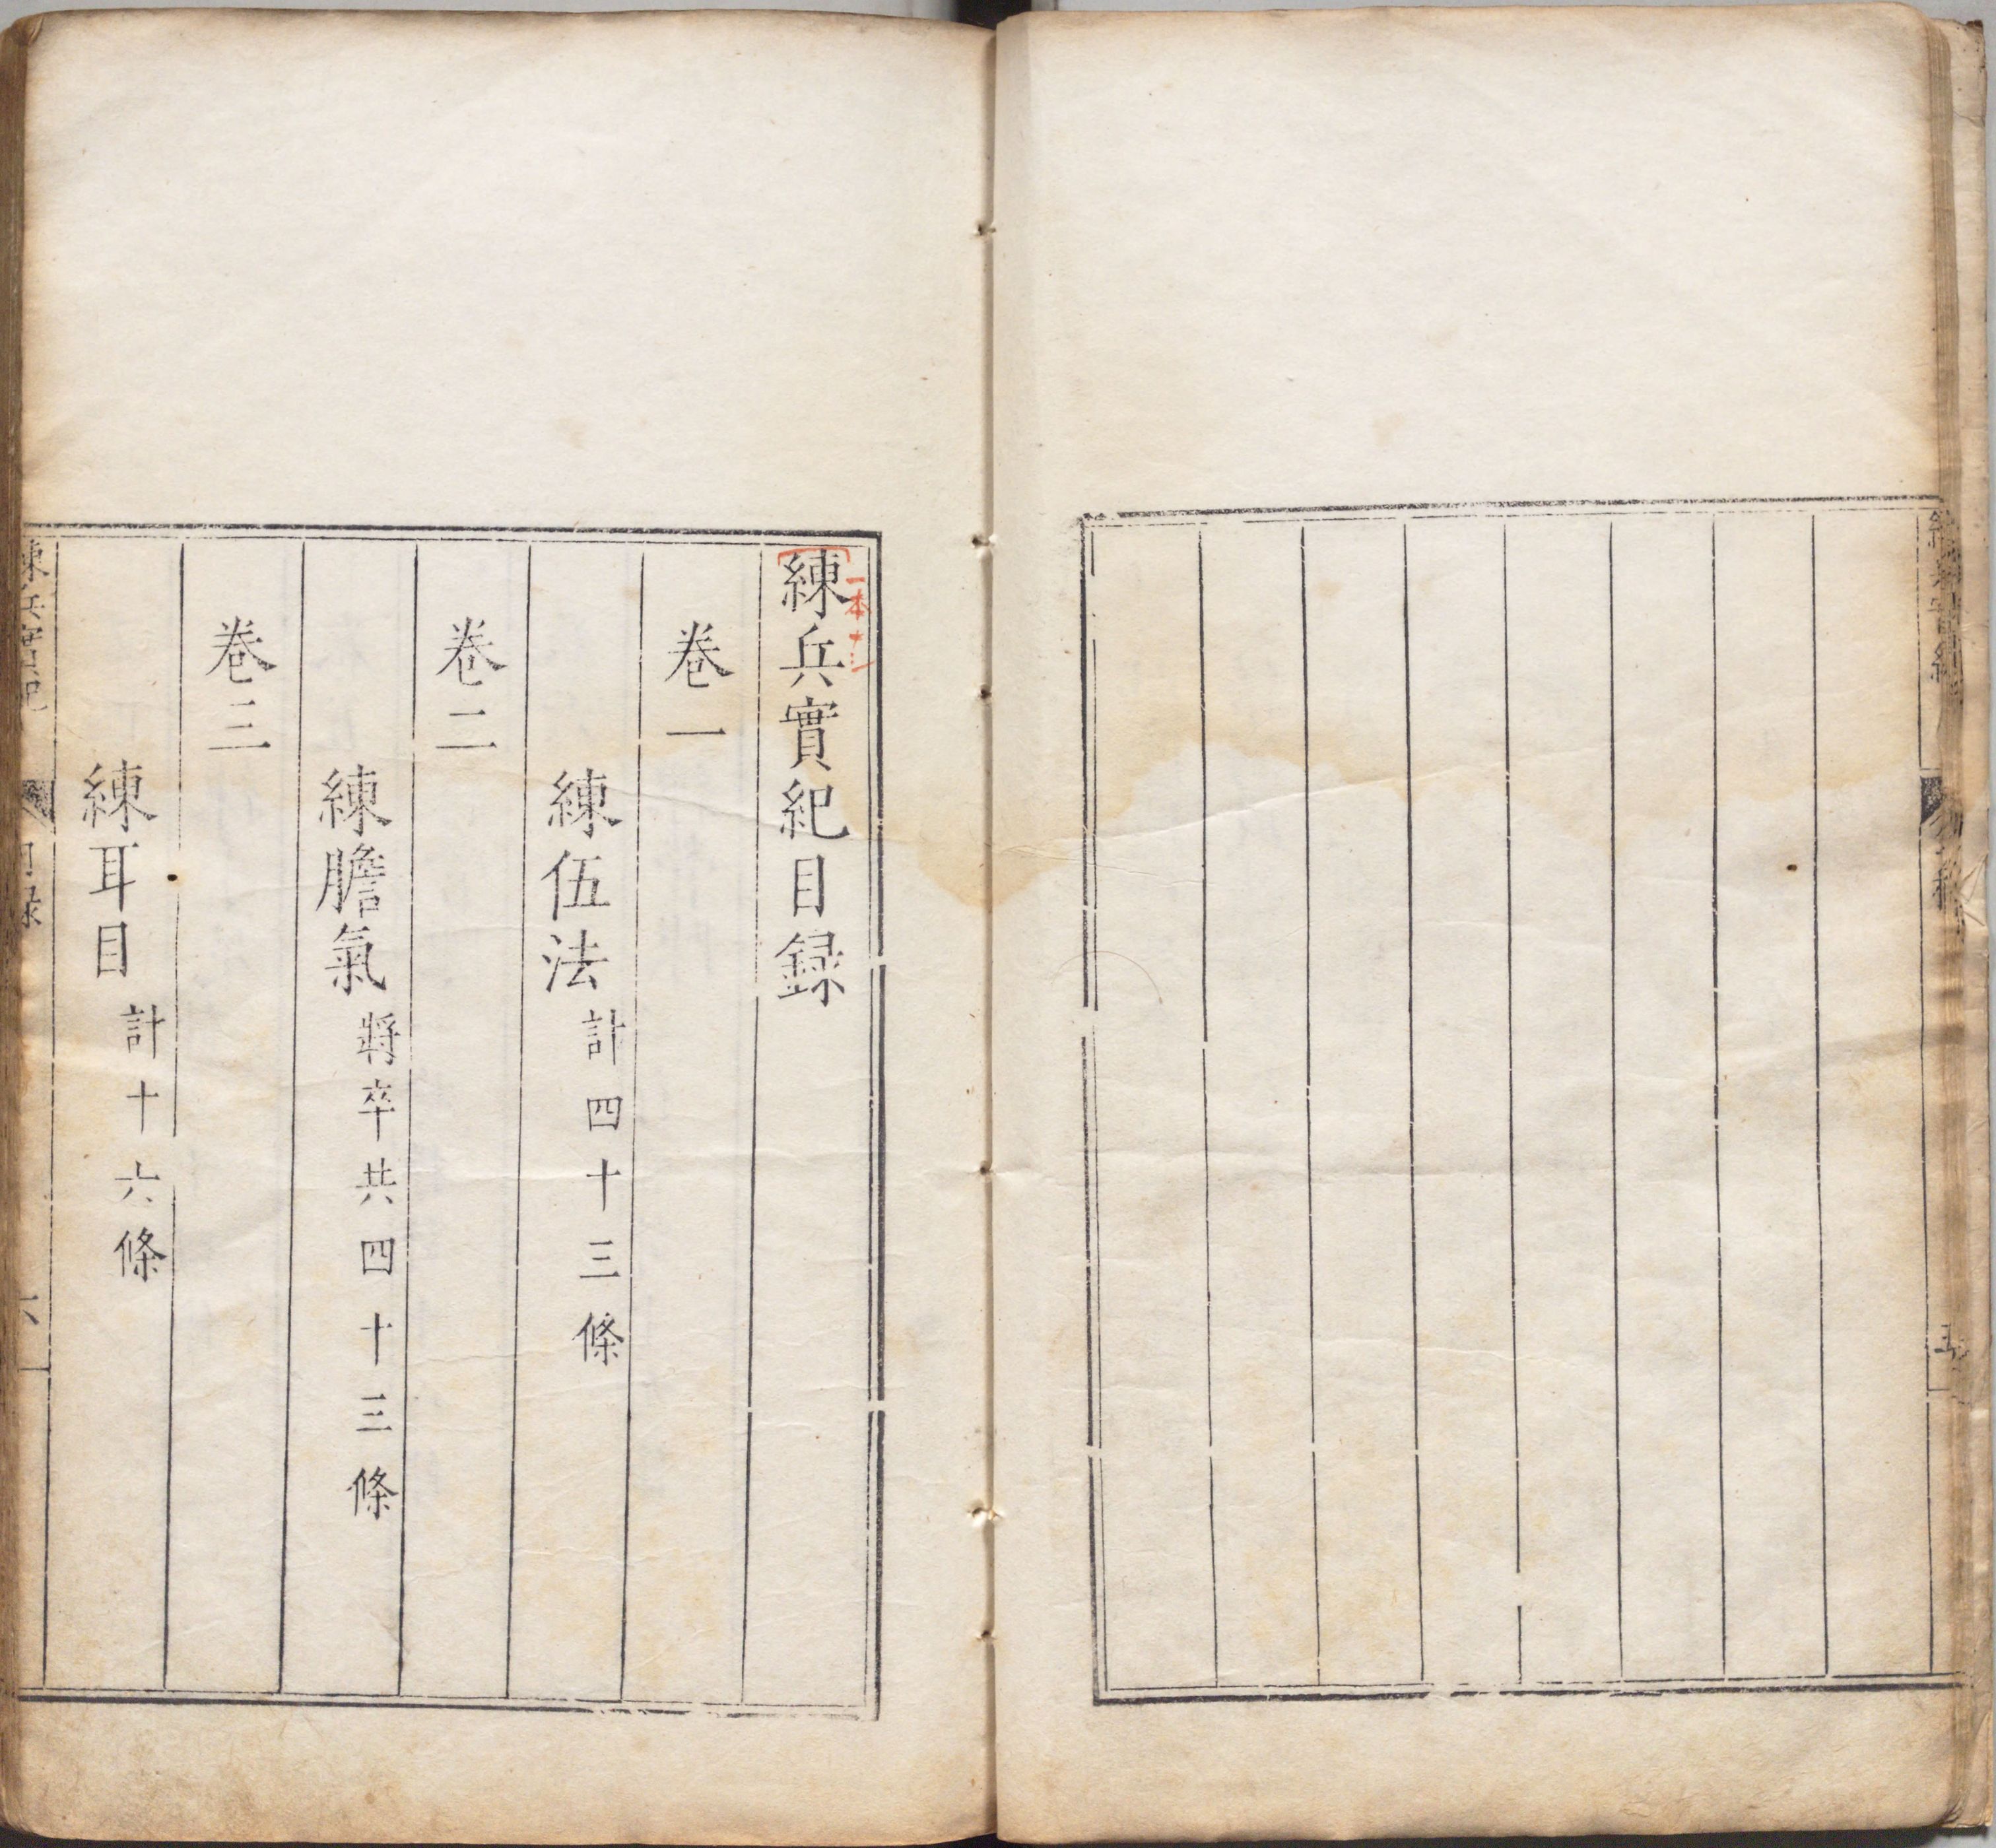 練兵實紀
五
練兵實紀目録
一本ナシ
卷一
練伍法計四十三條
卷二
練膽氣將卒共四十三條
卷三
練耳目計十六條
練兵實紀
目録
六